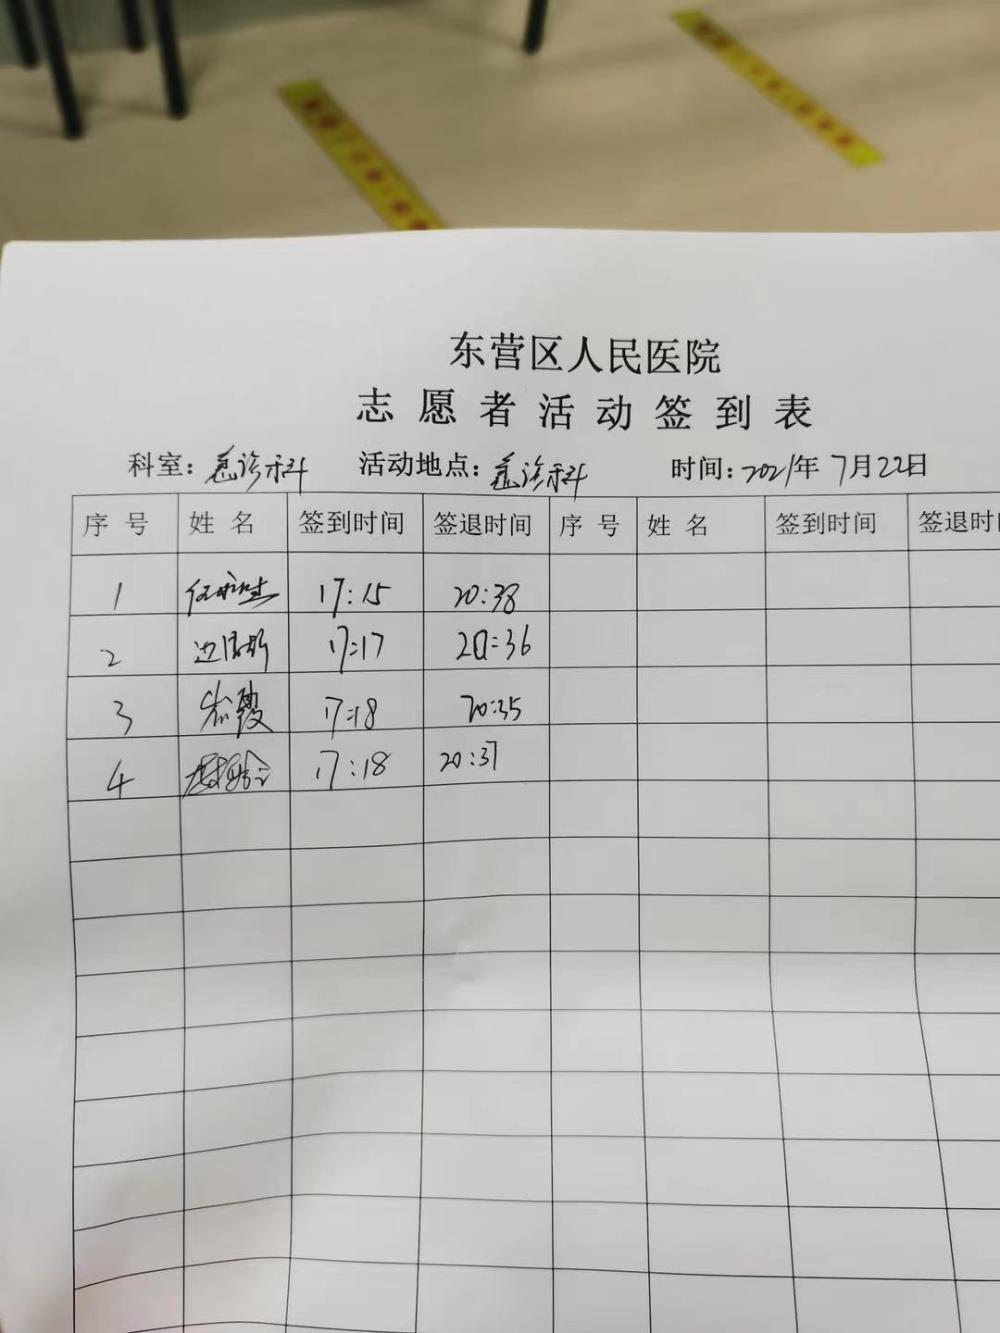 东营区人民医院
志愿者活动签到表
科室：急诊科 活动地点：急诊科 时间：2021年7月22日
序号 姓名 签到时间 签退时间 序号 姓名 签到时间 签退时
1 17:15 20:38
2 17:17 20:36
3 17:18 20:35
4 17:18 20:37